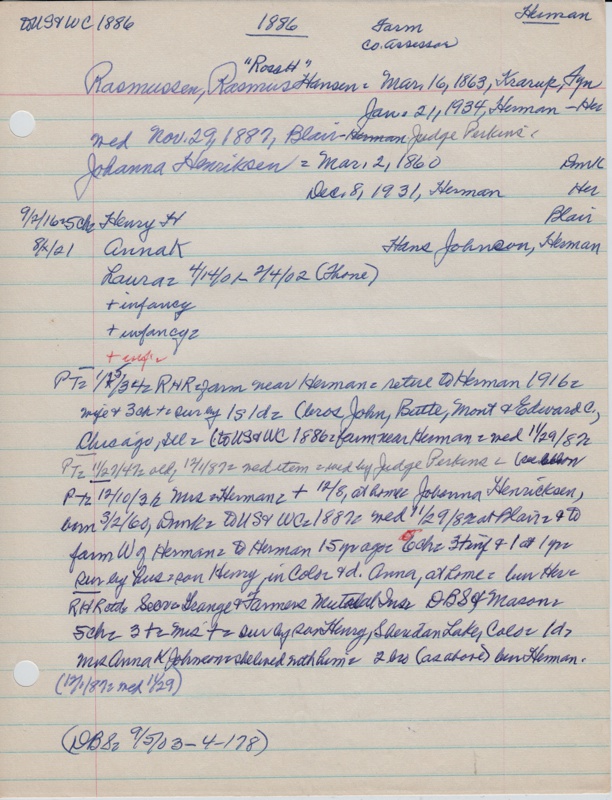 TO US & WC 1886 1886 Farm Herman
Co. Assessor
"Ross H"
Rasmussen, Rasmus Hansen = Mar. 16, 1863, Krarup, Fyn
Jan. 21, 1934, Herman - Her
wed Nov. 29, 1887, Blair - Herman Judge Perkins =
Johanna Henriksen = Mar. 2, 1860 Dmk
Dec. 8, 1931, Herman Her
9/2/16 = 5ch = Henry H Blair
8/2/21 Anna K Hans Johnson, Herman
Laura = 4/14/01 - 2/4/02 (Thone)
+ infancy
+ infancy =
+ inf =
PT = 1/25/34 = RHR = farm near Herman = retire to Herman 1916 =
wife & 3 ch + = sur by 1s 1d = (bros John, Butte, Mont & Edward C,
Chicago, Ill = (to US & WC 1886 = farm near Herman = wed 11/29/87 =
PT = 11/27/47 = old, 12/1/87 = wed item = wed by Judge Perkins =
PT = 12/10/31 = Mrs = Herman = + 12/8, at home Johanna Henricksen,
born 3/2/60, Dmk = TO US & WC = 1887 = wed 11/29/87 = at Blair = & to
farm W of Herman = to Herman 15 yr ago = 5 ch = 3 + inf & 1 at 1 yr =
sur by hus = son Henry, in Colo = & d. Anna, at home = bur Her =
RHR = Secr = Grange & Farmers Mutual Ins = DBS & Mason =
5 ch = 3 + = Mrs + = sur by son Henry, Sheridan Lake, Colo = 1d =
Mrs Anna K Johnson = she lived with him = 2 bro (as above) bur Herman =
(12/1/87 = wed 11/29)
(DBS = 9/5/03 - 4 - 178)